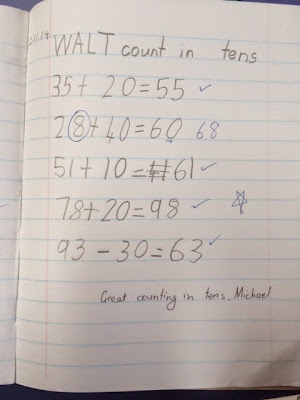 WALT count in tens
35 + 20 = 55 ✓
28 + 40 = 60 68
51 + 10 = 61 ✓
78 + 20 = 98 ✓ ☆
93 - 30 = 63 ✓
Great counting in tens, Michael